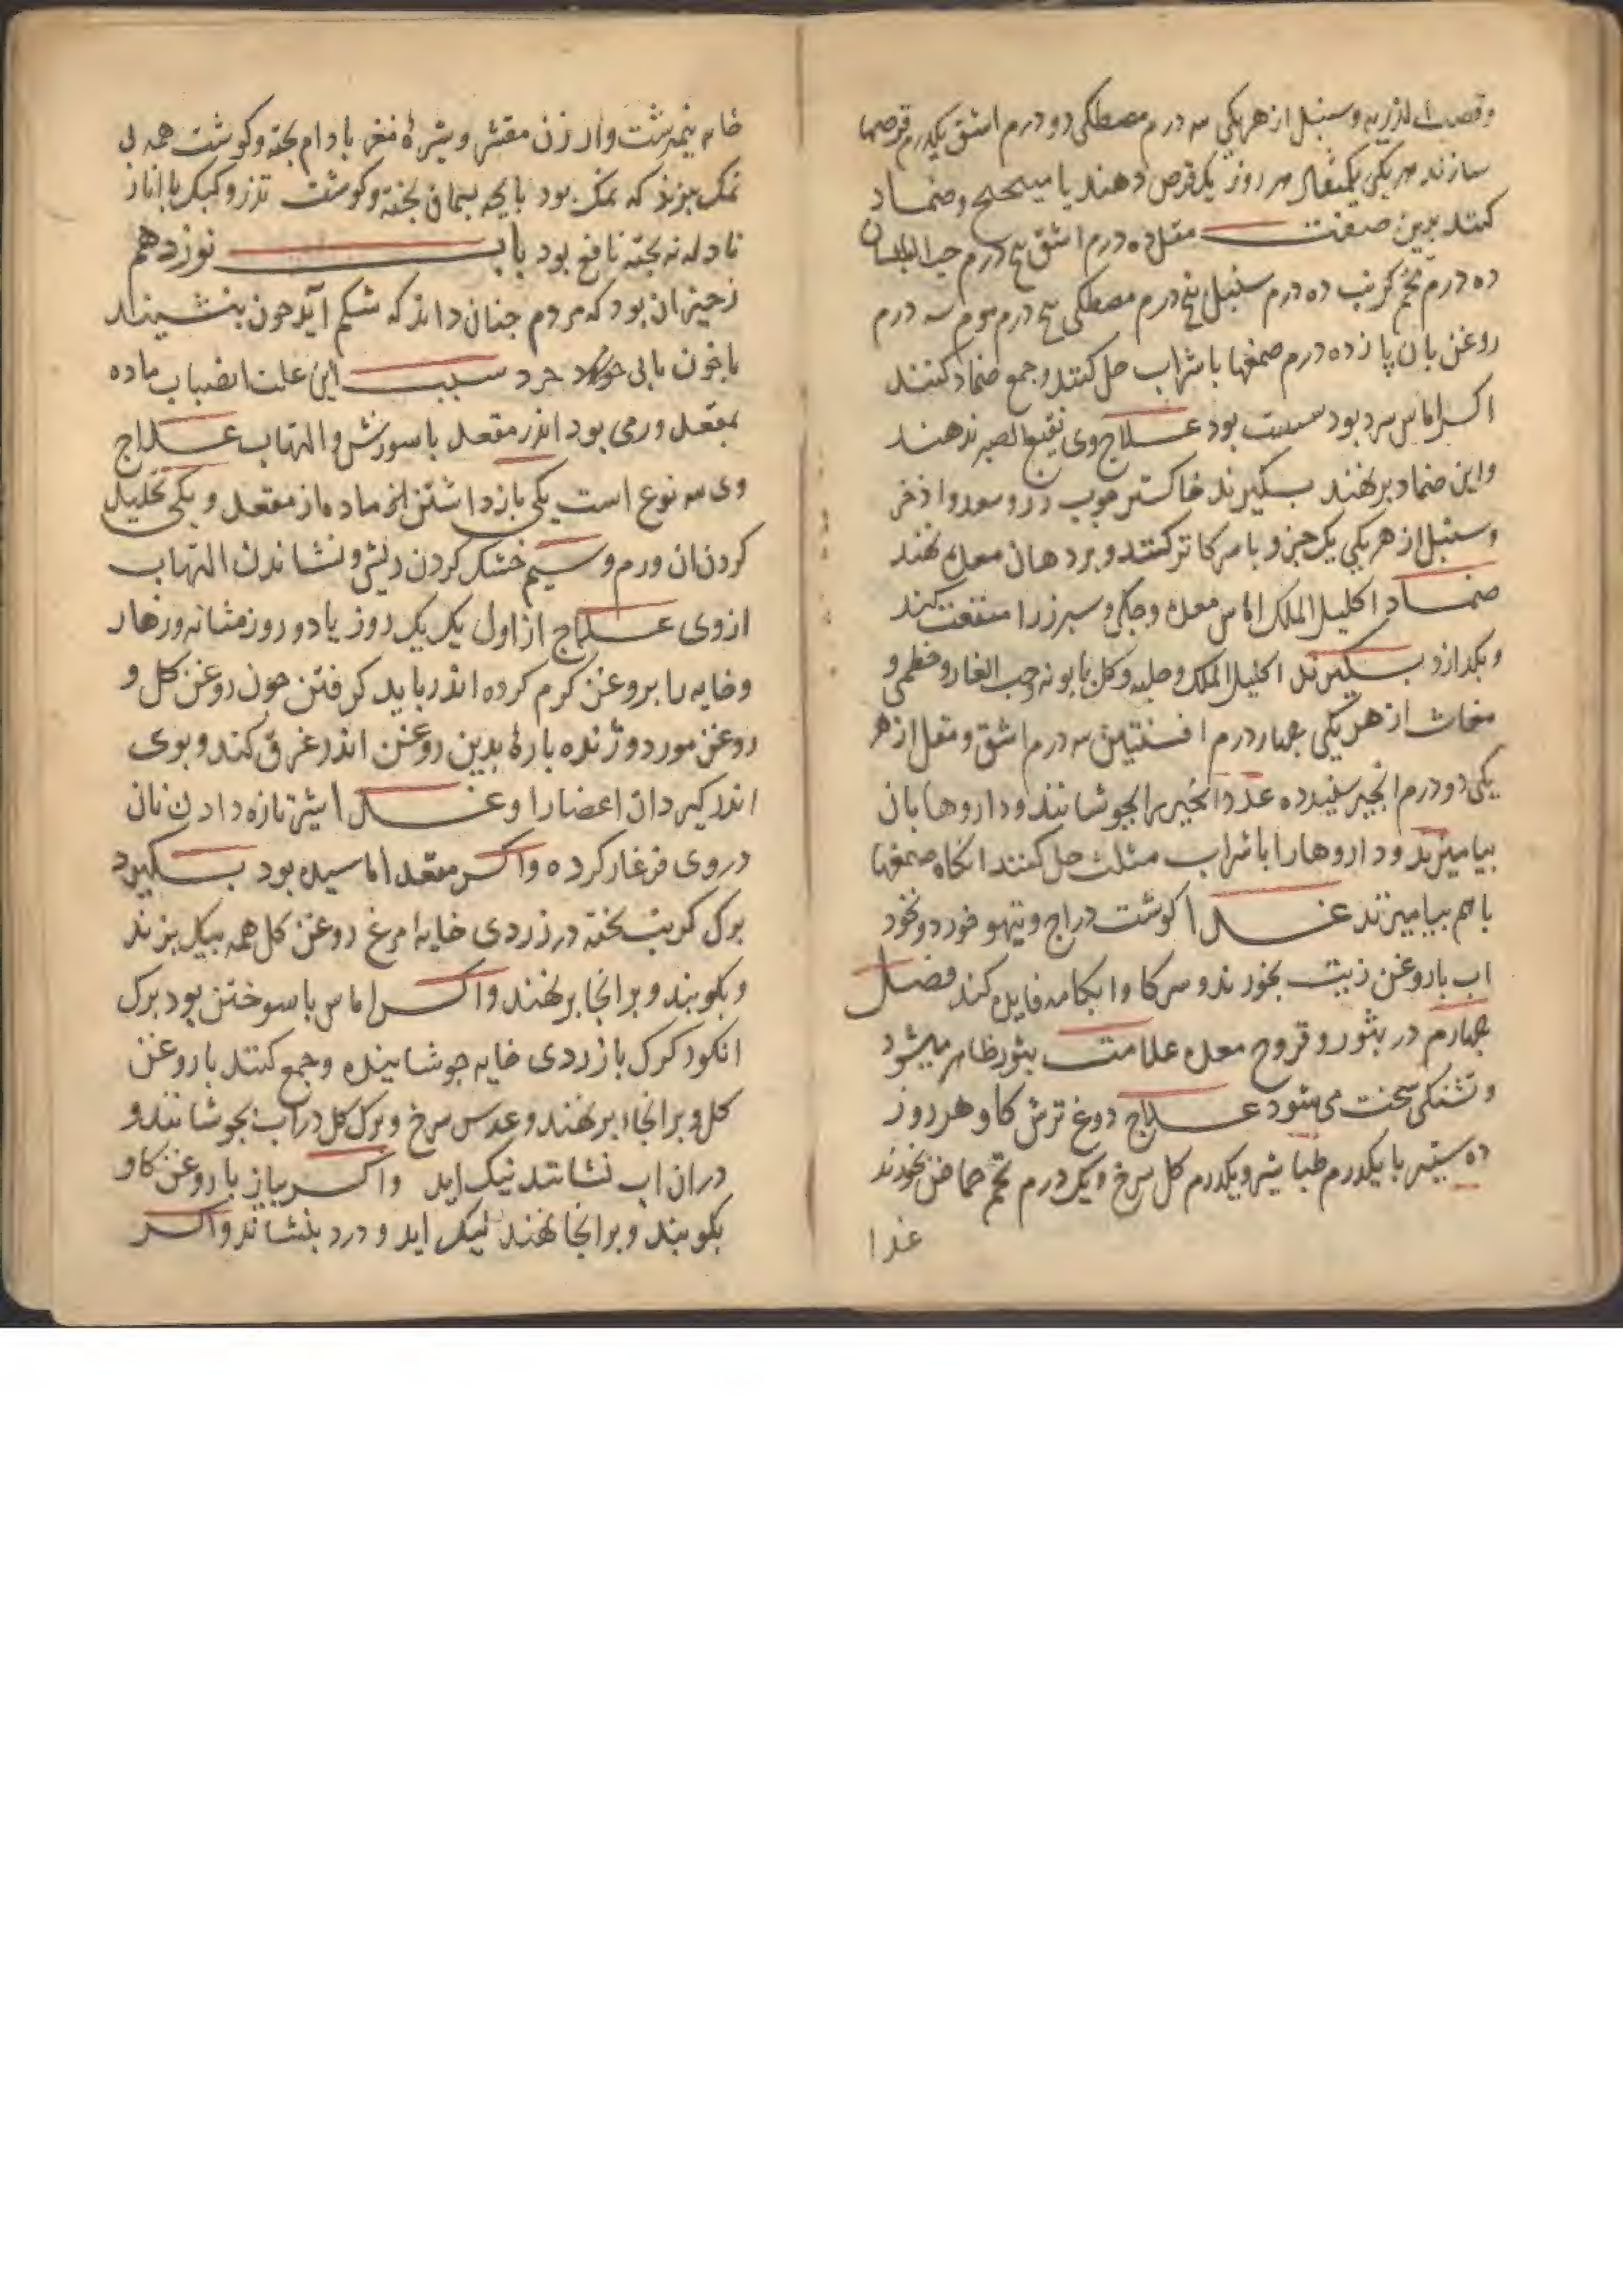 وقصب الذریره وسنبل از هر یکی سه درم مصطکی دو درم اشق یکدرم قرصها
سازند هر یکی یکمثقال هر روز یک قرص دهند با میبختج وضماد
کنند بدین صفت مقل ده درم اشق پنج درم حب البلسان
ده درم تخم کرنب ده درم سنبل پنج درم مصطکی پنج درم موم سه درم
روغن بان پانزده درم صمغها با شراب حل کنند وجمع ضماد کنند
اکر اماس سرد بود سبب بود علاج وی نقیع الصبر ندهند
واین ضماد بر نهند بگیرند خاکستر چوب رز وسعد واذخر
وسنبل از هر یکی یک جزو با سرکا تر کنند وبر دهان معده نهند
ضماد اکلیل الملک اماس معده وجگر وسپرز را منفعت کند
وبکدازد بگیرند اکلیل الملک وحلبه وکل بابونه وحب الغار وخطمی و
مغاث از هر یکی چهار درم افسنتین سه درم اشق ومقل از هر
یکی دو درم انجیر سفید ده عدد انجیر را بجوشانند وداروها بان
بیامیزند وداروها را با شراب مثلث حل کنند انکاه صمغها
با هم بیامیزند غذا کوشت دراج وتیهو خورد ونخود
اب با روغن زیت بخورند وسرکا وابکامه فایده کند فصل
چهارم در بثور وقروح معده علامت بثور ظاهر میشود
وتشنکی سخت می شود علاج دوغ ترش کاو هر روز
ده ستیر با یکدرم طباشیر ویکدرم کل سرخ ویک درم تخم حماض بخورند
غذا
خایه نیمبرشت وارزن مقشر وشیرهٔ مغز بادام پخته وکوشت همه بی
نمک بپزند که نمک بود پایچه بسماق پخته وکوشت تذرو وکبک با انار
نادانه پخته نافع بود باب نوزدهم
زحیر ان بود که مردم چنان داند که شکم آید چون بنشیند
با خون یا بی خون خرد سبب این علت انصباب ماده
بمقعد ورمی بود اندر مقعد با سوزش والتهاب علاج
وی سه نوع است یکی بازداشتن ان ماده از مقعد ویکی تحلیل
کردن ان ورم وسیم خشک کردن ریش ونشاندن التهاب
از وی علاج از اول یک یک روز یا دو روز مثانه وزهار
وخایه را بروغن کرم کرده اندر باید کرفتن چون روغن کل و
روغن مورد وژنده پارهٔ بدین روغن اندر غرق کند وبوی
اندر کیرد ان اعضا را وغذا شیر تازه دادن نان
در وی فرغار کرده واکر مقعد اماسیده بود بگیرد
برک کرنب پخته در زردی خایه مرغ روغن کل همه بیکل بزند
وبکوبند وبر انجا بر نهند واکر اماس با سوختن بود برک
انکور کرک با زردی خایه جوشانیده وجمع کنند با روغن
کل وبر انجا بر نهند وعدس سرخ وبرک کل در اب بجوشانند و
در ان اب نشانند نیک اید واکر پیاز با روغن کاو
بکوبند وبر انجا نهند نیک اید ودرد بنشاند واکر